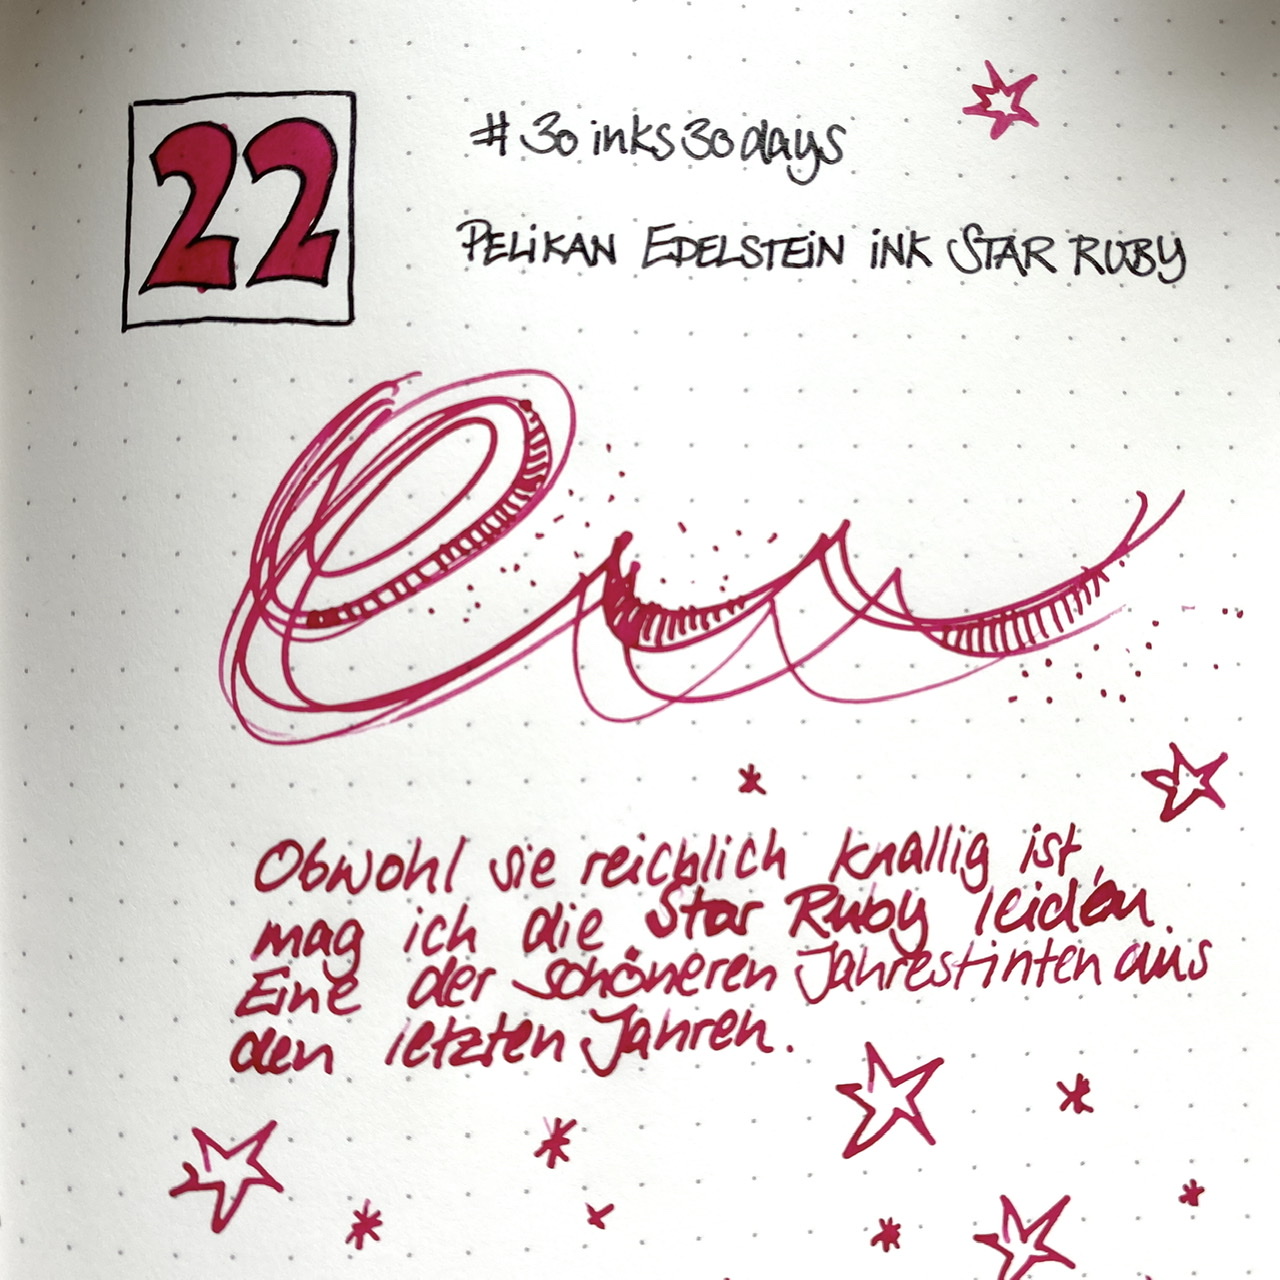 22
#30inks30days
PELIKAN EDELSTEIN INK STAR RUBY
Obwohl sie reichlich knallig ist,
mag ich die Star Ruby leiden.
Eine der schöneren Jahrestinten aus
den letzten Jahren.